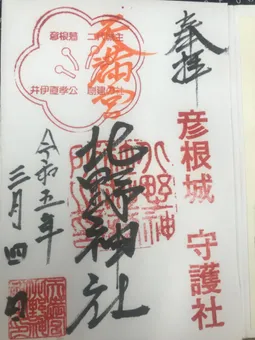 奉拝
彦根城 守護社
天満宮
彦根藩 二代藩主
井伊直孝公 創建の社
北野神社
令和五年
三月四日